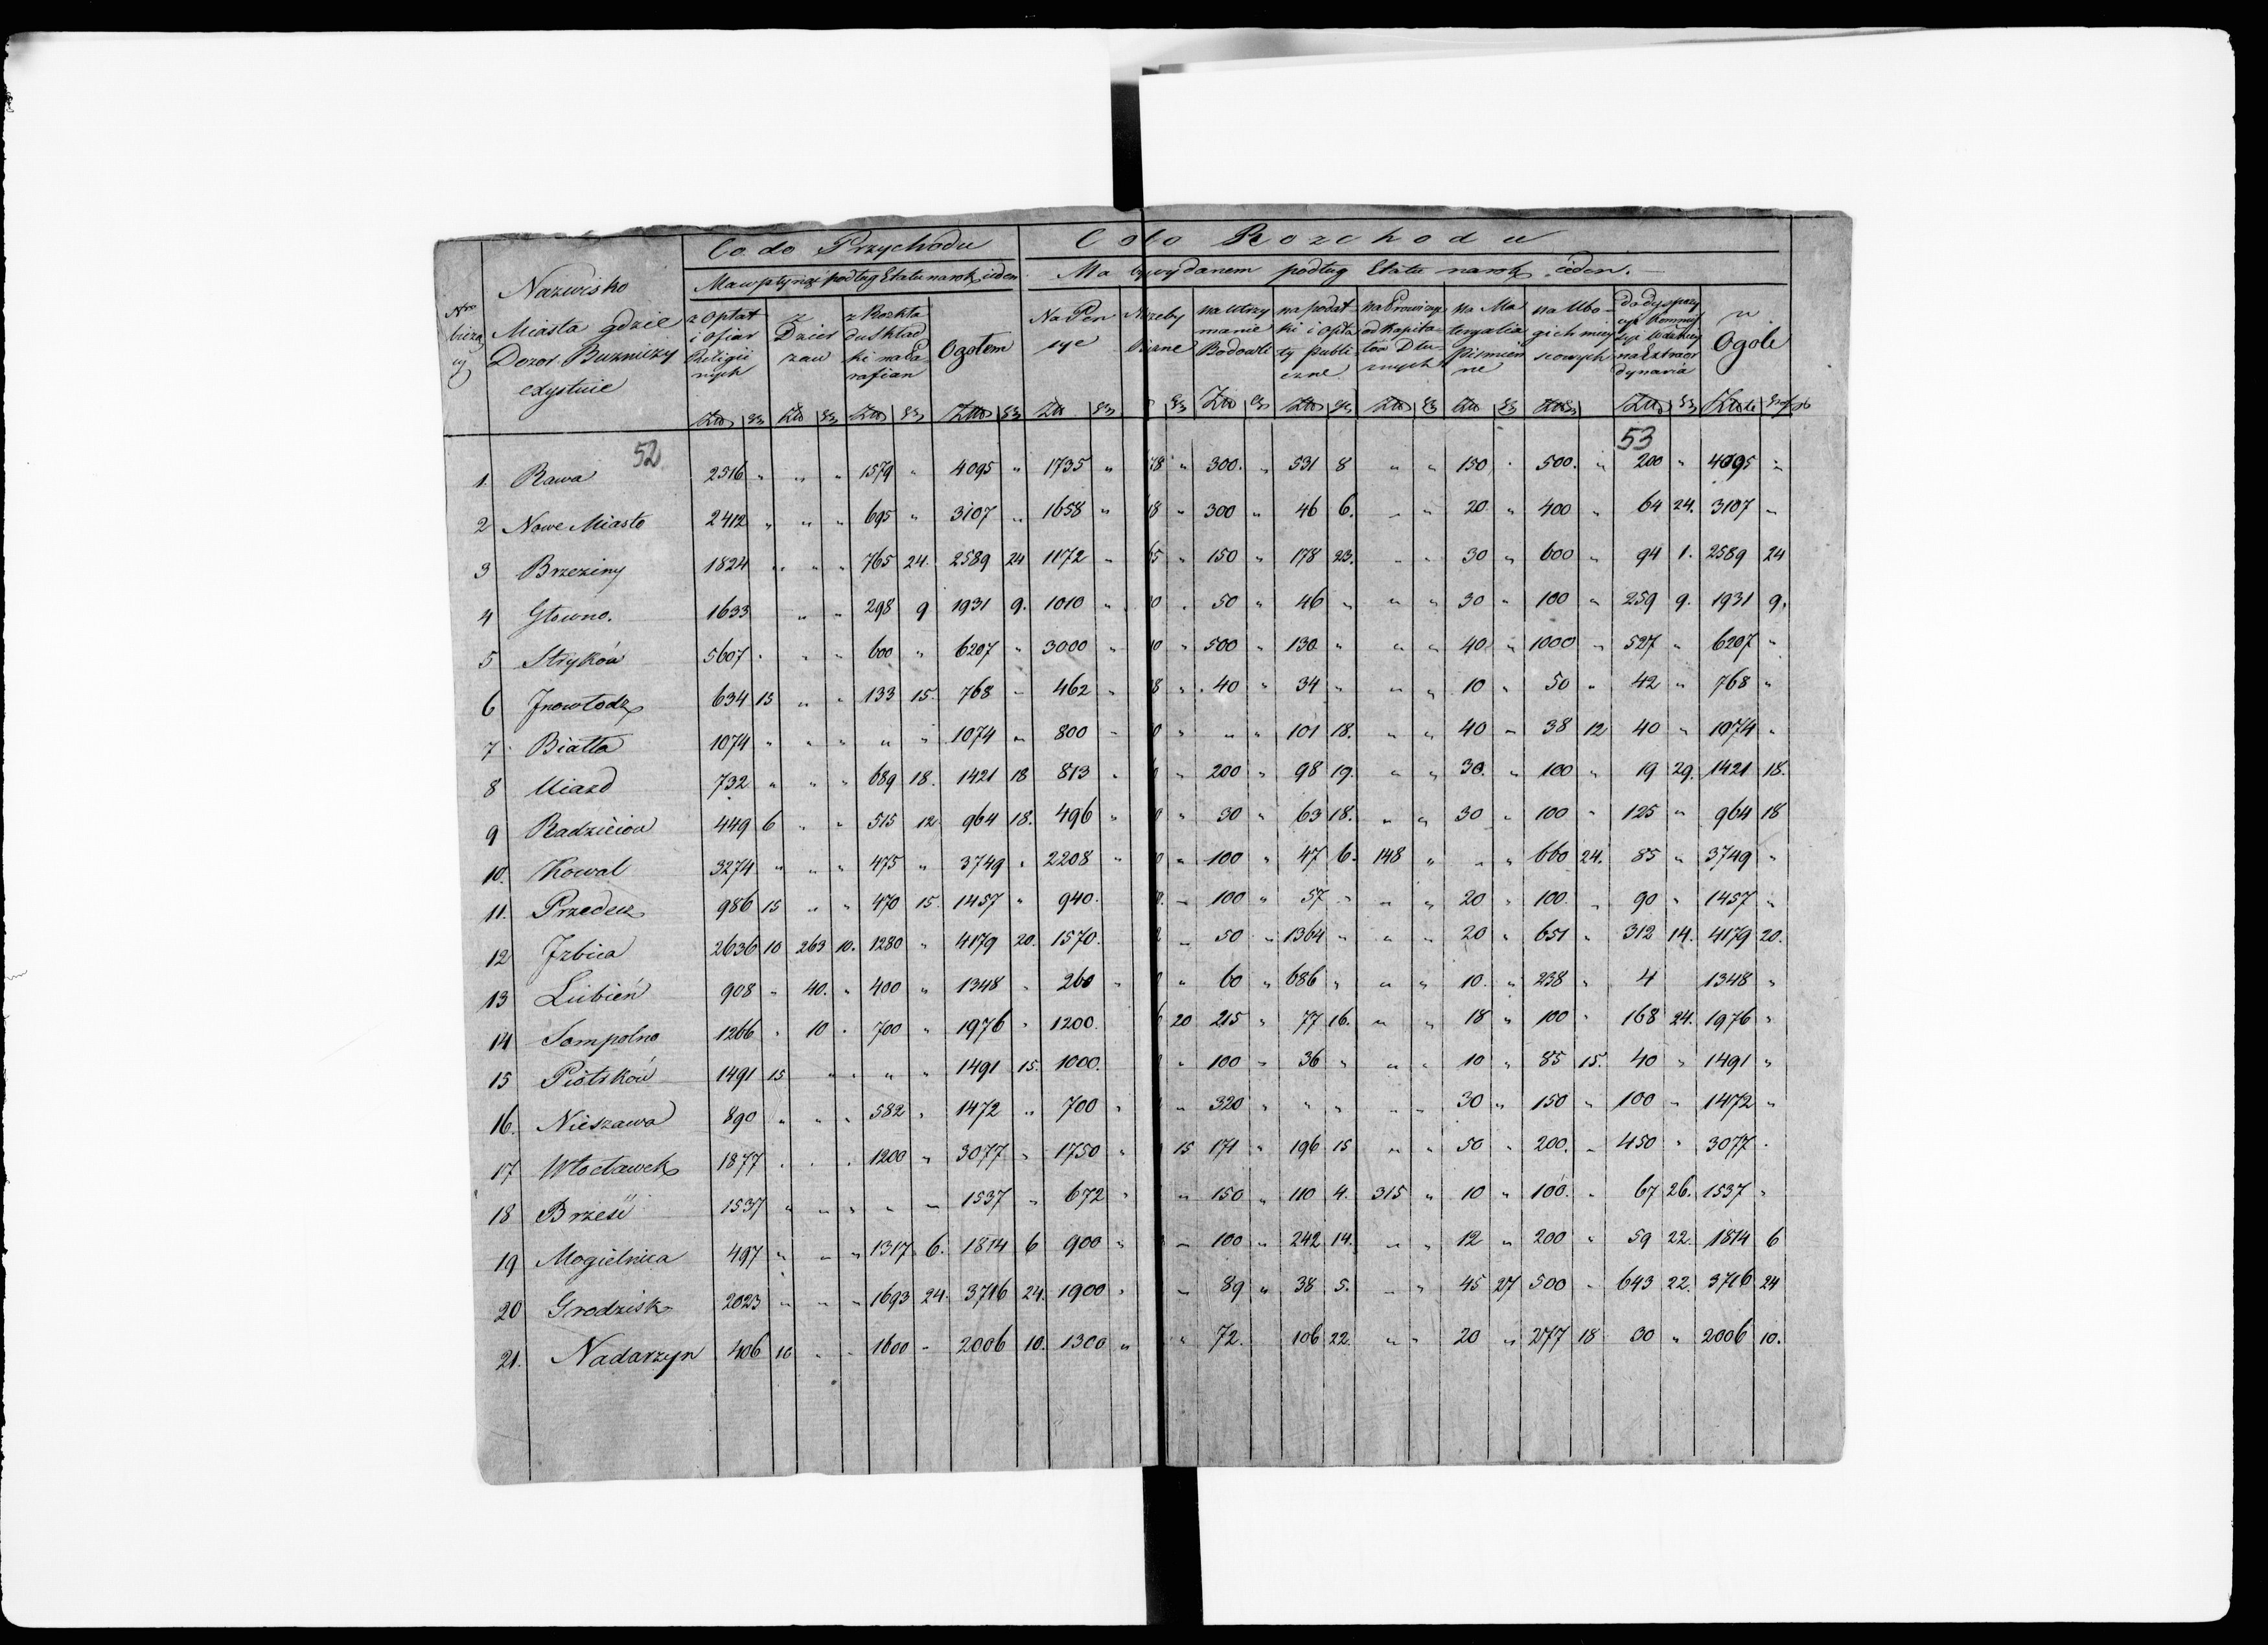 Co do Przychodu
Co do Rozchodu
Nro bieżący
Nazwisko Miasta gdzie Dozor Bużniczy exystuie
Ma wpłynąć podług Etatu na rok ieden
Ma być wydanem podług Etatu na rok ieden.
z Opłat i ofiar Religiinych
z Dzierzaw
z Rozkładu Składki na Parafian
Ogołem
Na Pensye
na utrzymanie Budowli
na podatki i opłaty publiczne
na Prowizye od Kapitałow Dłużnych
na Materyalia pismienne
na Ubogich mieyscowych
do dyspozycyi Kommissyi Wdzkiey na Extraordynaria
w Ogole
52
53
1. Rawa 2516 „ „ „ 1579 „ 4095 „ 1735 „ 8 „ 300. „ 531 8 „ „ 150 „ 500. „ 200 „ 4095 „
2 Nowe Miasto 2412 „ „ „ 695 „ 3107 „ 1658 „ 8 „ 300 „ 46 6. „ „ 20 „ 400 „ 64 24. 3107 „
3 Brzeziny 1824 „ „ „ 765 24. 2589 24 1172 „ 5 „ 150 „ 178 23. „ „ 30 „ 600 „ 94 1. 2589 24
4 Głowno. 1633 „ „ 298 9 1931 9. 1010 „ 0 „ 50 „ 46 „ „ „ 30 „ 100 „ 259 9. 1931 9.
5 Stryków 5607 „ „ „ 600 „ 6207 „ 3000 „ 0 „ 500 „ 130 „ „ „ 40 „ 1000 „ 527 „ 6207 „
6 Jnowłodz 634 15 „ „ 133 15. 768 „ 462 „ 8 „ 40 „ 34 „ „ „ 10 „ 50 „ 42 „ 768 „
7 Biała 1074 „ „ „ „ „ 1074 „ 800 „ 0 „ „ „ 101 18. „ „ 40 „ 38 12 40 „ 1074 „
8 Uiazd 732 „ „ „ 689 18. 1421 18 813 „ „ 200 „ 98 19. „ „ 30. „ 100 „ 19 29. 1421 18.
9 Radzieiow 449 6 „ „ 515 12 964 18. 496 „ 0 „ 30 „ 63 18. „ „ 30 „ 100 „ 125 „ 964 18
10. Kowal 3274 „ „ „ 475 „ 3749 „ 2208 „ 0 „ 100 „ 47 6. 148 „ „ „ 660 24. 85 „ 3749 „
11. Przedecz 986 15 „ „ 470 15. 1457 „ 940. „ 100 „ 57 „ „ „ 20 „ 100. „ 90 „ 1457 „
12 Jzbica 2636 10 263 10. 1280 „ 4179 20. 1570. 2 „ 50 „ 1364 „ „ „ 20 „ 651 „ 312 14. 4179 20.
13 Lubień 908 „ 40. „ 400 „ 1348 „ 260 „ „ 60 „ 686 „ „ „ 10. „ 238 „ 4 1348 „
14 Sompolno 1266 „ 10 „ 700 „ 1976 „ 1200. 20 215 „ 77 16. „ „ 18 „ 100 „ 168 24. 1976 „
15 Piotrków 1491 15 „ „ „ „ 1491 15. 1000. „ 100 „ 36 „ „ „ 10 „ 85 15. 40 „ 1491 „
16. Nieszawa 890 „ „ „ 582 „ 1472 „ 700 „ „ 320 „ „ „ „ „ 30 „ 150 „ 100 „ 1472 „
17 Włocławek 1877 „ „ „ 1200 „ 3077 „ 1750 „ 15 171 „ 196 15 „ „ 50 „ 200. „ 450 „ 3077 „
18 Brześć 1537 „ „ „ „ „ 1537 „ 672 „ „ 150 „ 110 4. 315 „ 10 „ 100. „ 67 26. 1537 „
19 Mogielnica 497 „ „ „ 1317 6. 1814 6 900 „ „ 100 „ 242 14. „ „ 12 „ 200 „ 59 22. 1814 6
20 Grodzisk 2023 „ „ „ 1693 24. 3716 24. 1900 „ „ 89 „ 38 5. „ „ 45 27 500 „ 643 22. 3716 24
21. Nadarzyn 406 10 „ „ 1600 „ 2006 10. 1300 „ „ 72. 106 22 „ „ 20 „ 277 18 30 „ 2006 10.